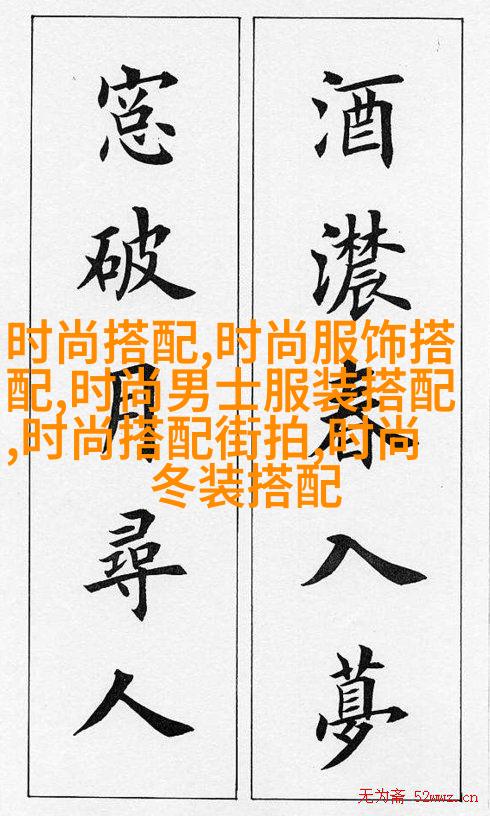 酒濃春入夢
窓破月尋人
时尚搭配,时尚服饰搭
配,时尚男士服装搭配
,时尚搭配街拍,时尚
冬装搭配
无为斋 52wwz.cn